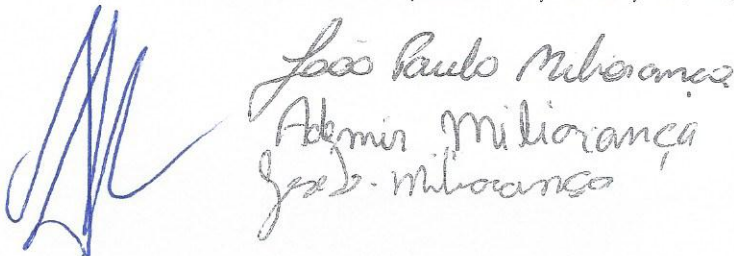 João Paulo Miliorança
Ademir Miliorança
José D. Miliorança